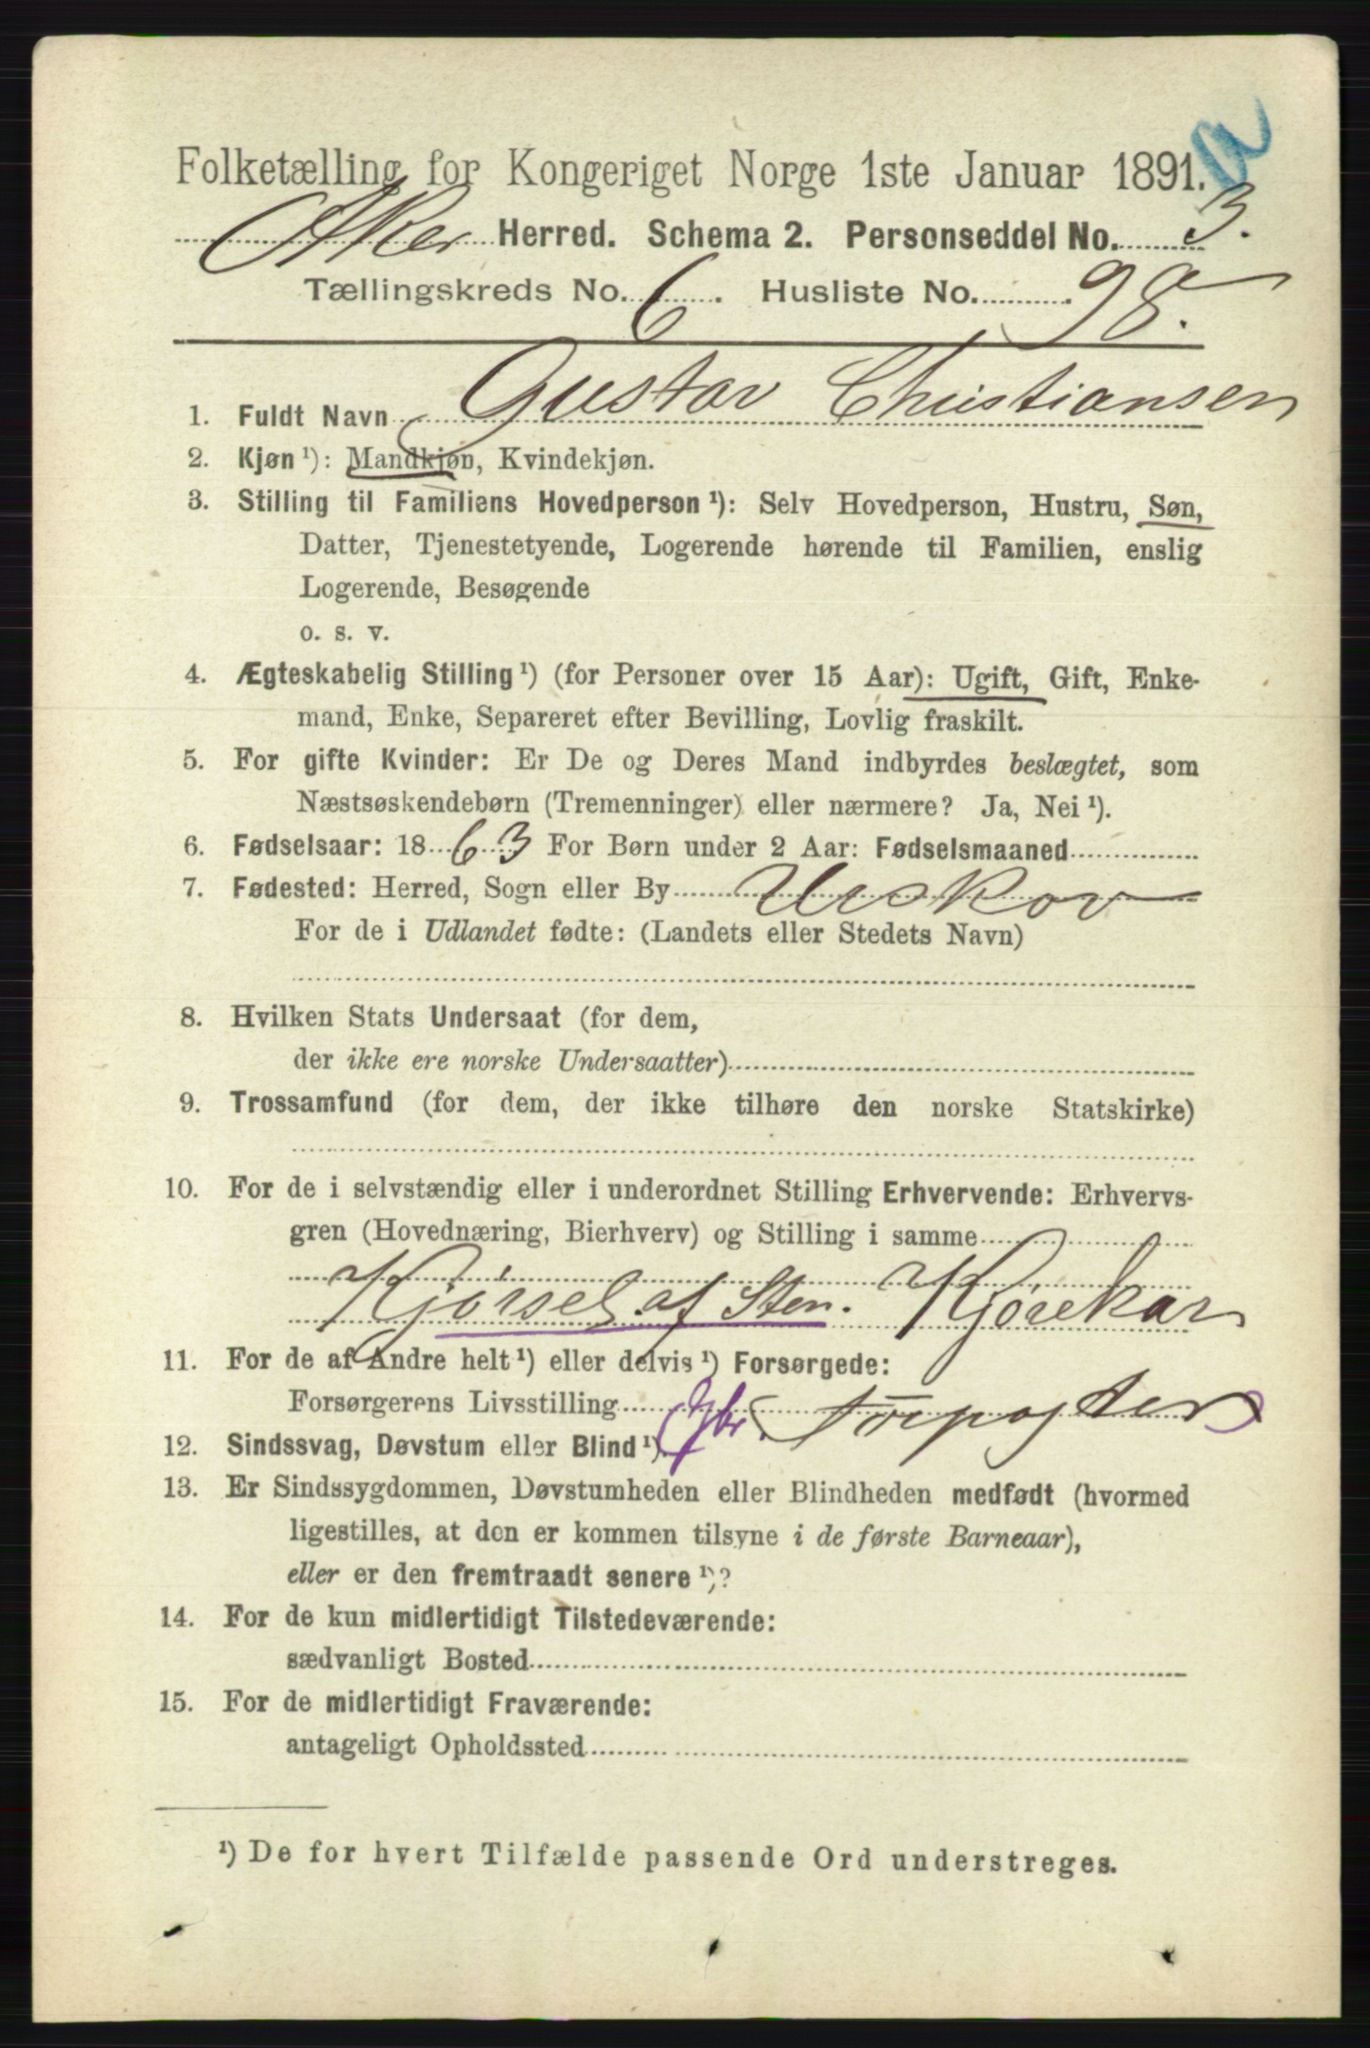 a
Folketælling for Kongeriget Norge 1ste Januar 1891.
Aker Herred. Schema 2. Personseddel No. 3.
Tællingskreds No. 6. Husliste No. 98.
1. Fuldt Navn Gustav Christiansen
2. Kjøn ¹): Mandkjøn, Kvindekjøn.
3. Stilling til Familiens Hovedperson ¹): Selv Hovedperson, Hustru, Søn,
Datter, Tjenestetyende, Logerende hørende til Familien, enslig
Logerende, Besøgende
o. s. v.
4. Ægteskabelig Stilling ¹) (for Personer over 15 Aar): Ugift, Gift, Enke-
mand, Enke, Separeret efter Bevilling, Lovlig fraskilt.
5. For gifte Kvinder: Er De og Deres Mand indbyrdes beslægtet, som
Næstsøskendebørn (Tremenninger) eller nærmere? Ja, Nei ¹).
6. Fødselsaar: 1863 For Børn under 2 Aar: Fødselsmaaned
7. Fødested: Herred, Sogn eller By Urskov
For de i Udlandet fødte: (Landets eller Stedets Navn)
8. Hvilken Stats Undersaat (for dem,
der ikke ere norske Undersaatter)
9. Trossamfund (for dem, der ikke tilhøre den norske Statskirke)
10. For de i selvstændig eller i underordnet Stilling Erhvervende: Erhvervs-
gren (Hovednæring, Bierhverv) og Stilling i samme
Kjørsel af Sten. Kjørekar
11. For de af Andre helt ¹) eller delvis ¹) Forsørgede:
Forsørgerens Livsstilling
12. Sindssvag, Døvstum eller Blind ¹).
13. Er Sindssygdommen, Døvstumheden eller Blindheden medfødt (hvormed
ligestilles, at den er kommen tilsyne i de første Barneaar),
eller er den fremtraadt senere ¹)?
14. For de kun midlertidigt Tilstedeværende:
sædvanligt Bosted
15. For de midlertidigt Fraværende:
antageligt Opholdssted
¹) De for hvert Tilfælde passende Ord understreges.